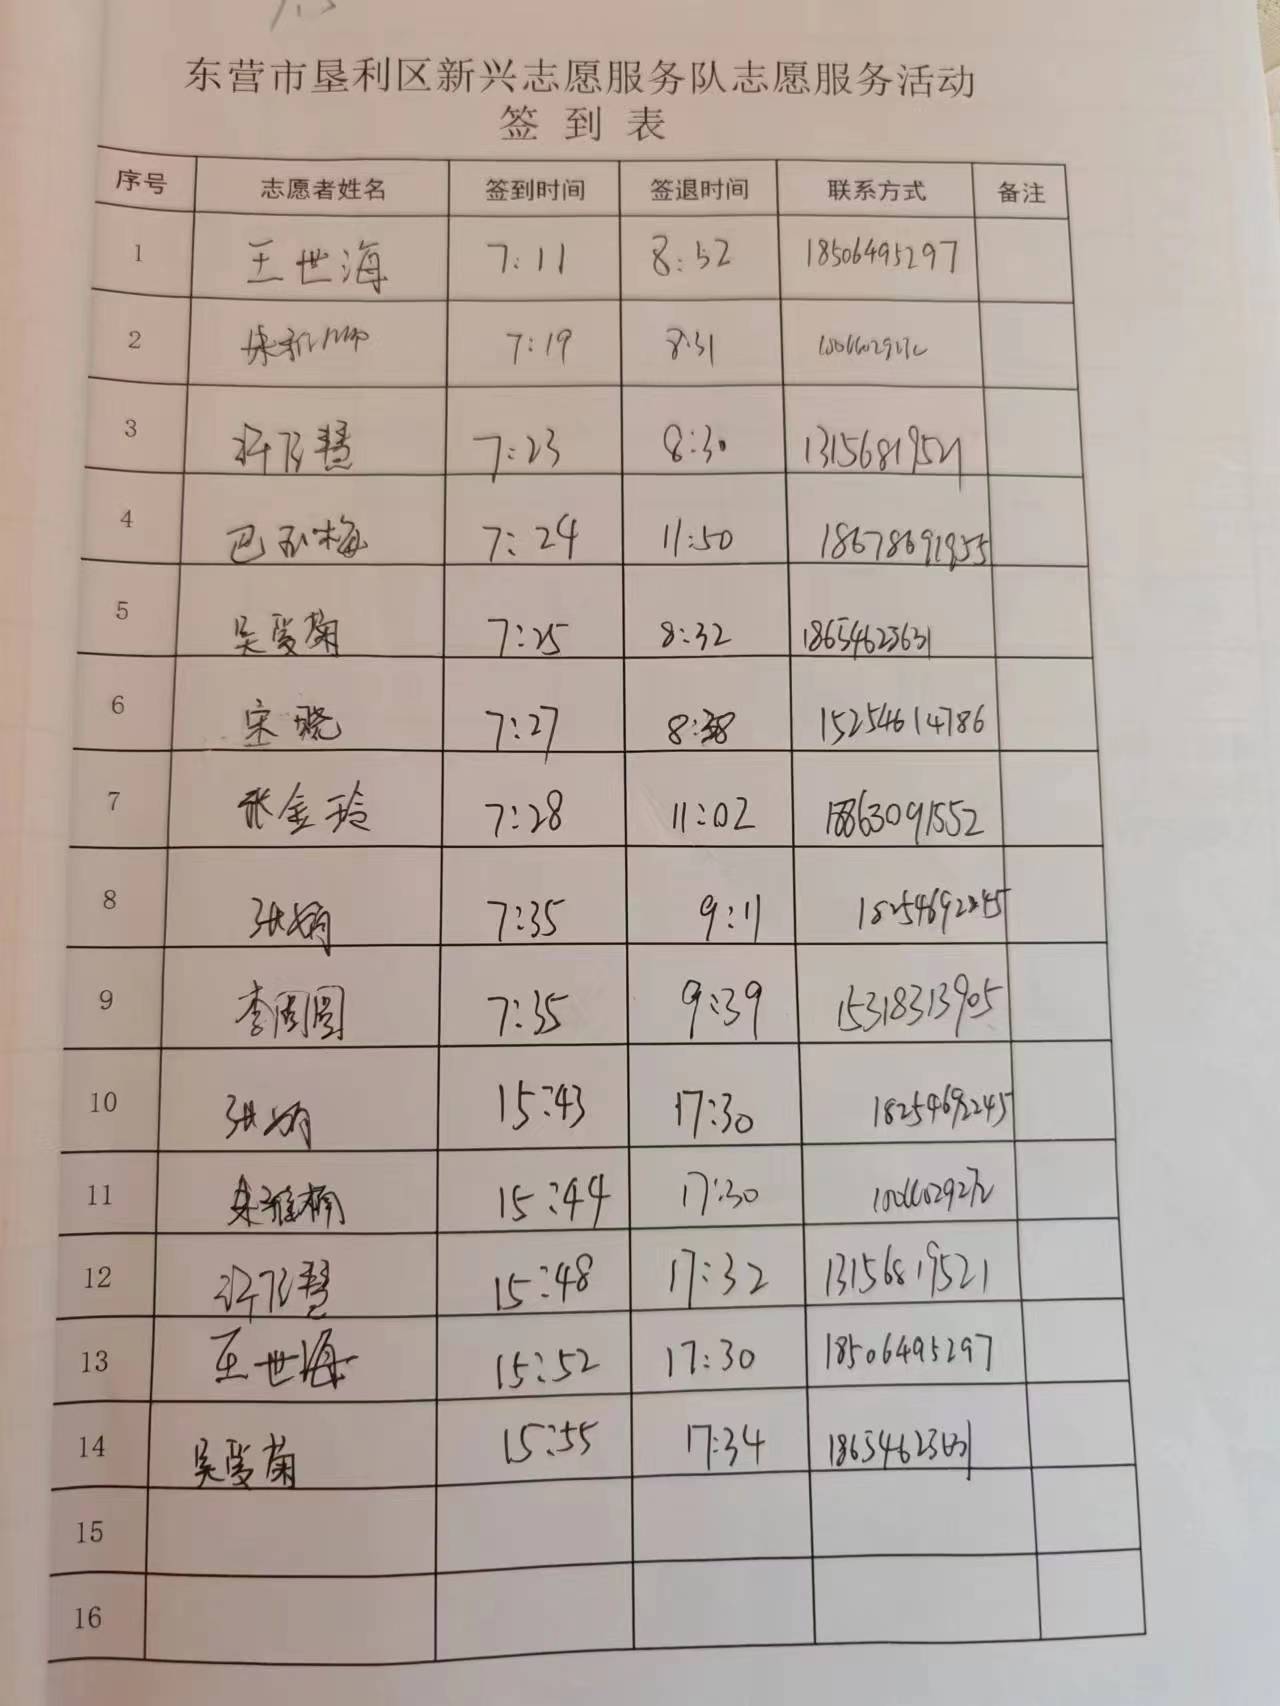 东营市垦利区新兴志愿服务队志愿服务活动
签到表
序号 志愿者姓名 签到时间 签退时间 联系方式 备注
1 王世海 7:11 8:52 18506495297
2 7:19 8:31
3 许乃慧 7:23 8:30 13156819521
4 巴 梅 7:24 11:50
5 吴爱菊 7:25 8:32 18654623631
6 宋晓 7:27 8:38 15254614786
7 张金玲 7:28 11:02 18863091552
8 张娟 7:35 9:11 18254692245
9 李团圆 7:35 9:39 15318313905
10 张娟 15:43 17:30 18254692245
11 15:44 17:30
12 许乃慧 15:48 17:32 13156819521
13 王世海 15:52 17:30 18506495297
14 吴爱菊 15:55 17:34 18654623631
15
16